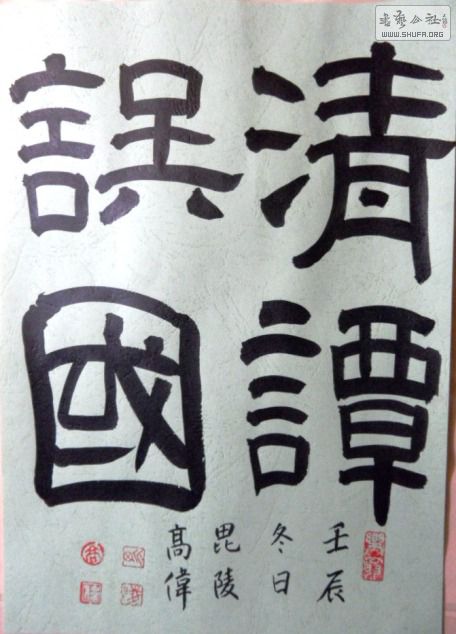 清譚
誤國
壬辰
冬日
毘陵
髙偉
書藝公社
WWW.SHUFA.ORG